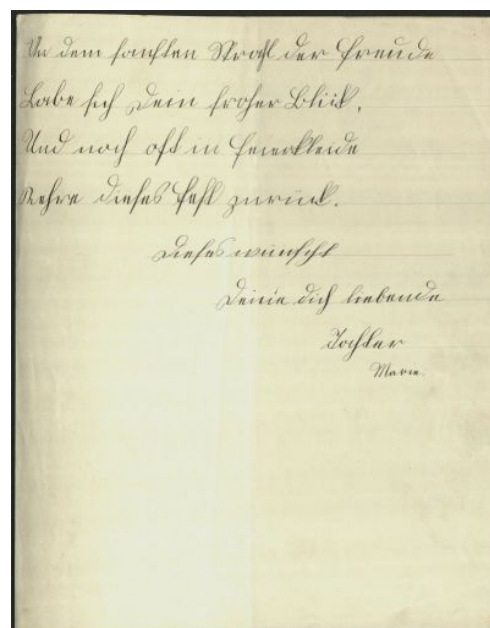 An dem sanften Strahl der Freude
Labe sich Dein froher Blick,
Und noch oft in Feierkleide
Kehre dieses Fest zurück.
Dieses wünscht
Deine dich liebende
Tochter
Marie.